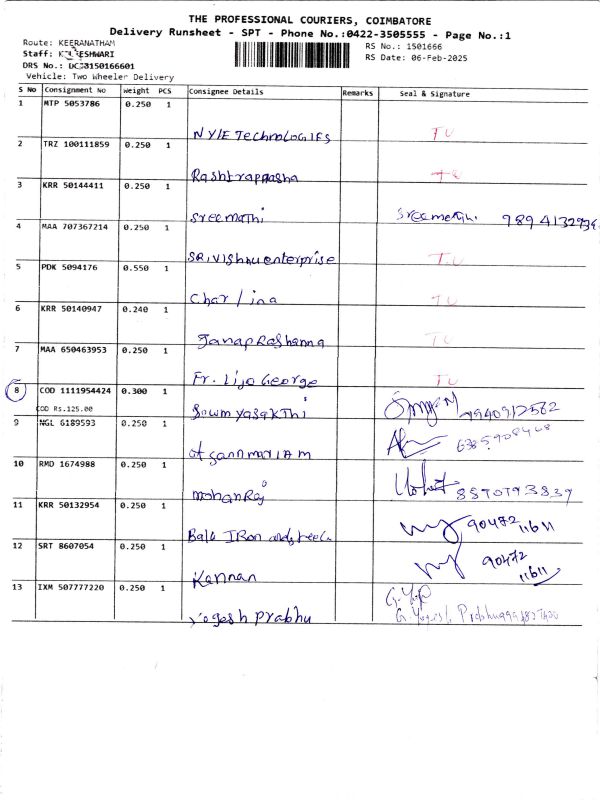 THE PROFESSIONAL COURIERS, COIMBATORE
Delivery Runsheet - SPT - Phone No.:0422-3505555 - Page No.:1
Route: KEERANATHAM
RS No.: 1501666
Staff:
RS Date: 06-Feb-2025
DRS No.:
Vehicle: Two Wheeler Delivery
S No Consignment No Weight PCS Consignee Details Remarks Seal & Signature
1 MTP 5053786 0.250 1
NYLE TechnoLoGiES TU
2 TRZ 100111859 0.250 1
Rashtrappasha
3 KRR 50144411 0.250 1
Sreemathi Sreemathi
4 MAA 707367214 0.250 1
SRi Vishnu enterprise TU
5 PDK 5094176 0.550 1
Charlina TU
6 KRR 50140947 0.240 1
TU
7 MAA 650463953 0.250 1
Fr. Lijo George TU
8 COD 1111954424 0.300 1
COD Rs.125.00
Sowmyasakthi 7940912562
9 NGL 6189593 0.250 1
10 RMD 1674988 0.250 1
mohanRaj
11 KRR 50132954 0.250 1
Bala IRon and steels 90472 11611
12 SRT 8607054 0.250 1
Kannan 90472 11611
13 IXM 507777220 0.250 1
yogesh prabhu